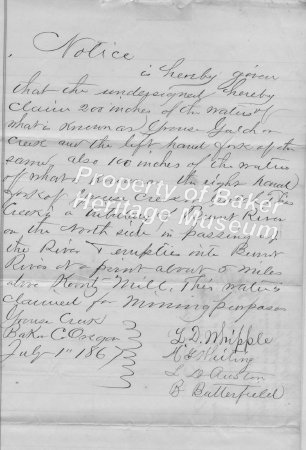 Notice
is hereby given
that the undersigned hereby
claim 200 inches of the waters of
what is known as Grouse Gulch or
Creek and the left hand fork of the
same, also 100 inches of the waters
of what is the right hand
fork of Grouse Creek
Creek, a tributary of Burnt River
on the North side in passing up
the River & empties into Burnt
River at a point about 5 miles
above Mill. This water is
claimed for Mining Purposes
Grouse Creek
Baker Co Oregon
July 1st 1867
L. D. Whipple
L D Auston
B Butterfield
Property of Baker
Heritage Museum